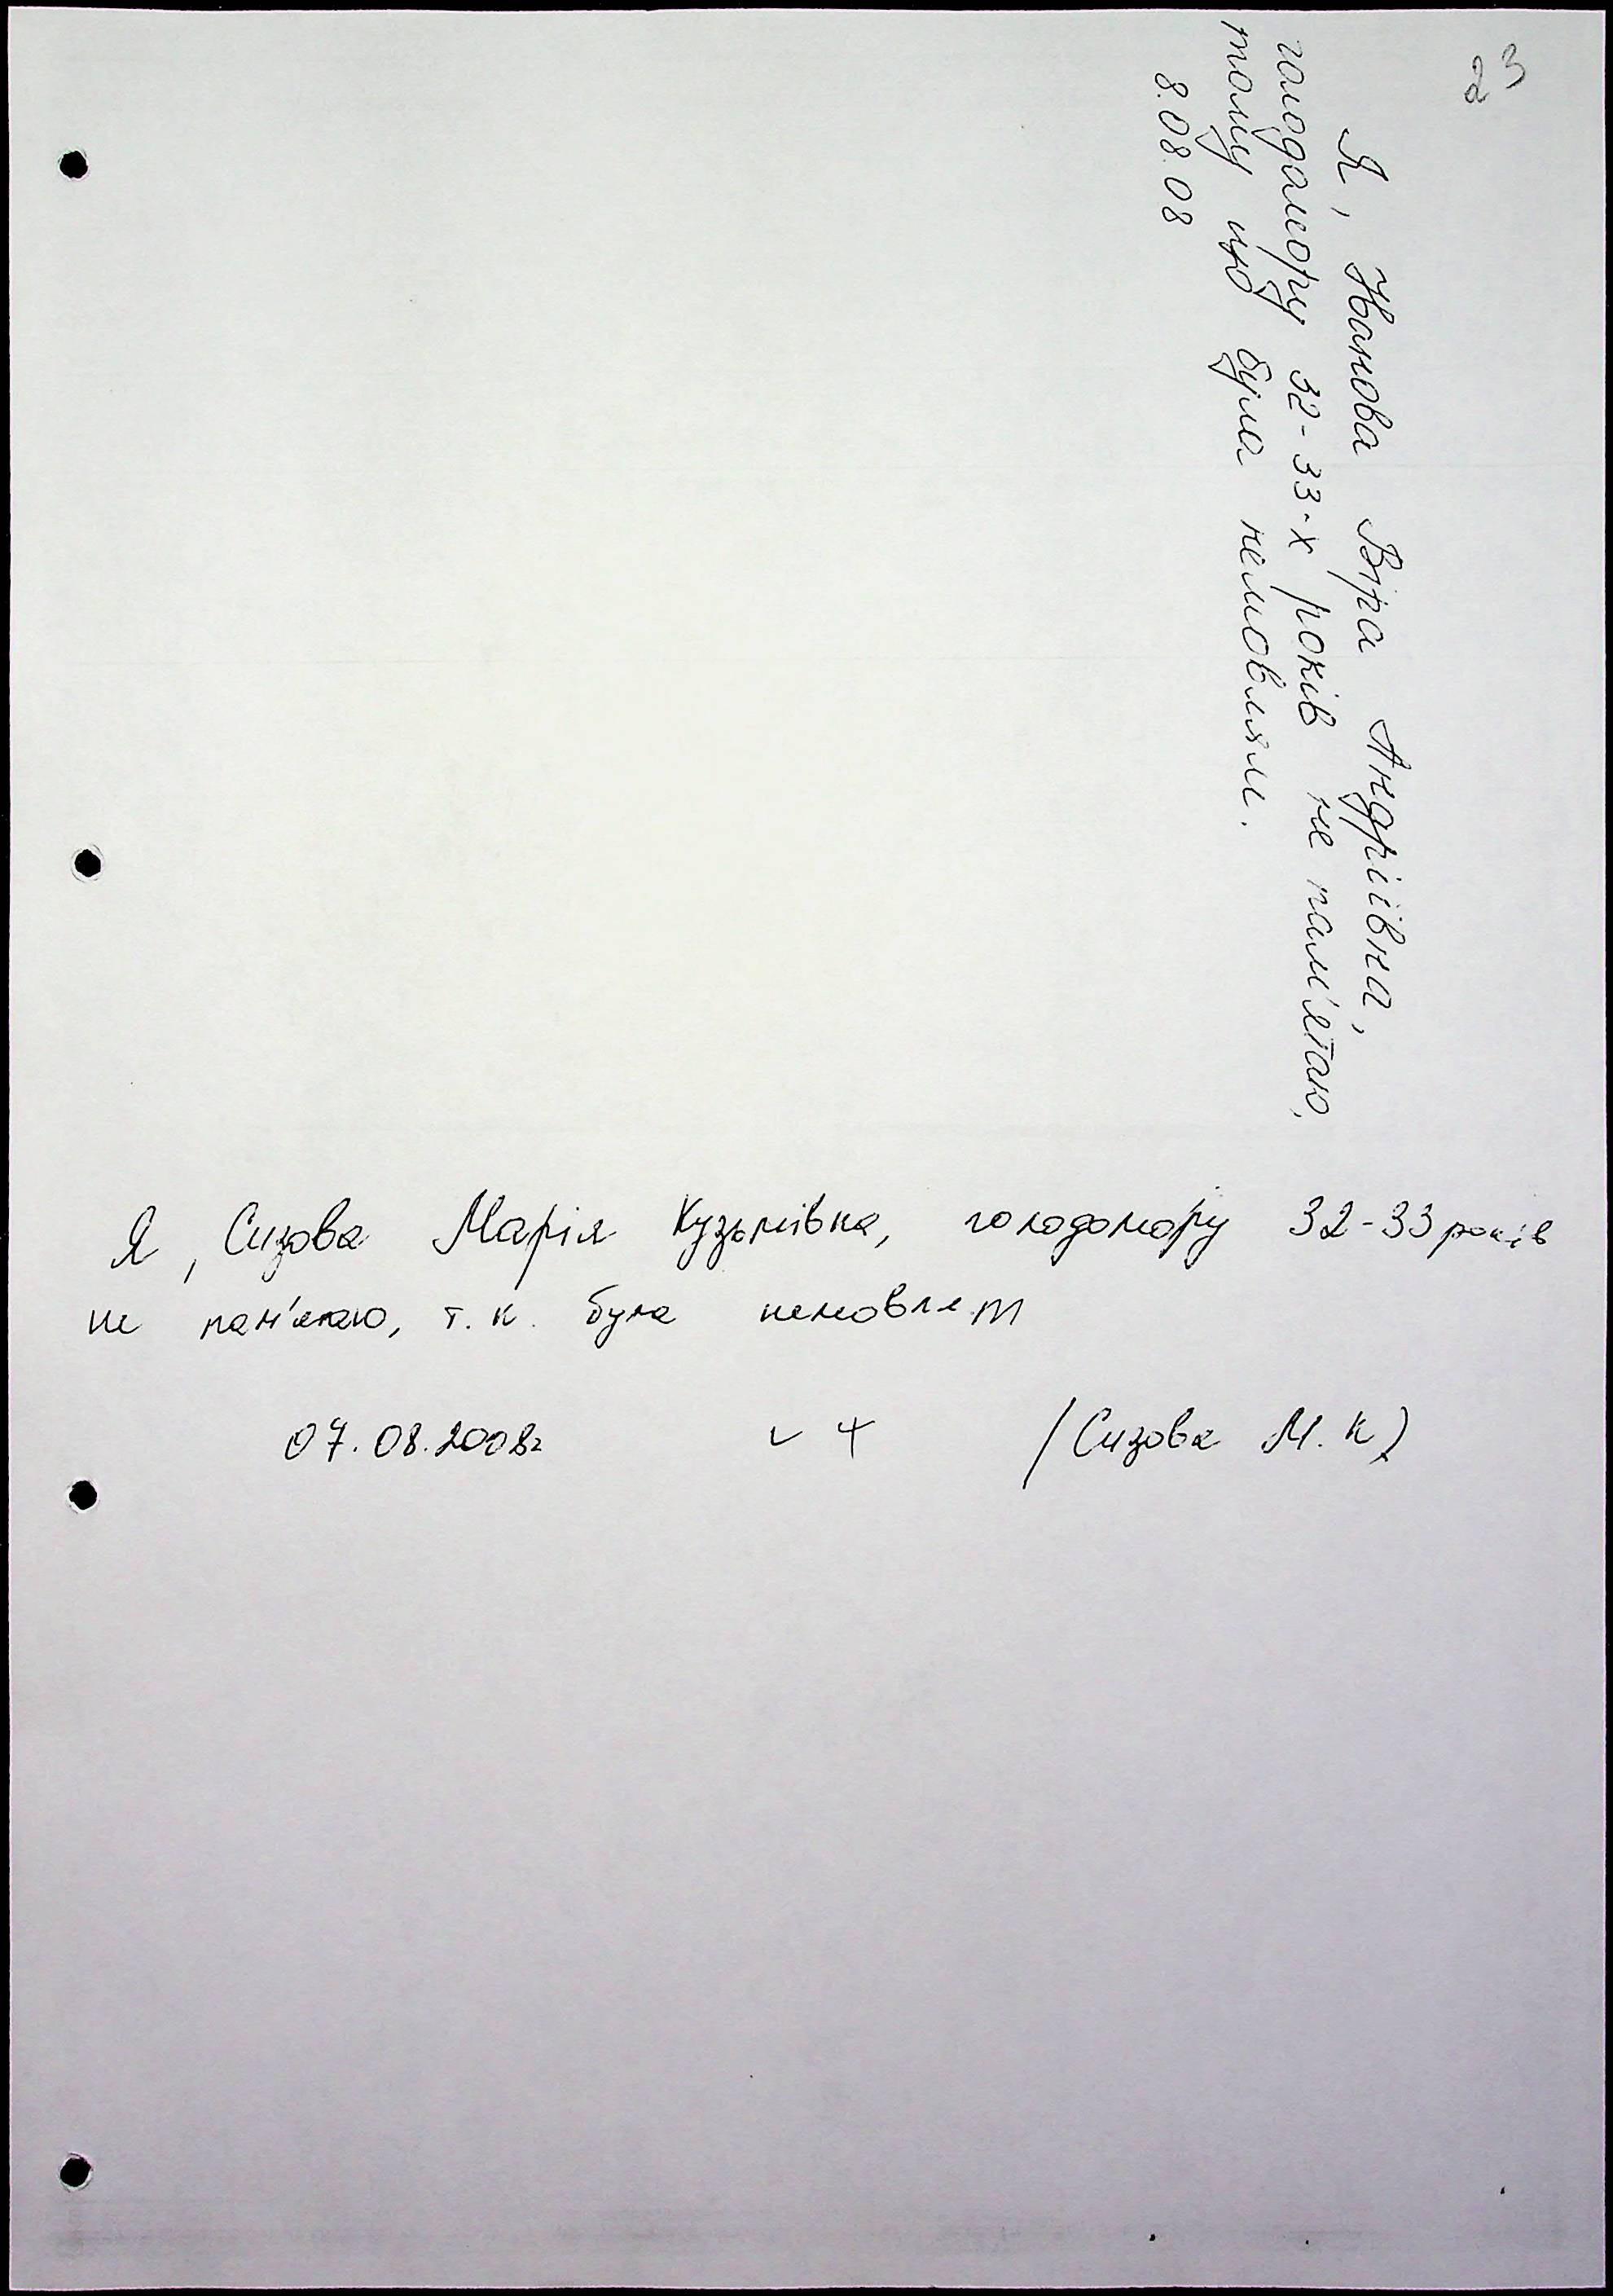 23
Я, Иванова Віра Андріївна,
голодомору 32-33-х років не пам'ятаю,
тому що була немовлям.
8.08.08
Я, Сизова Марія Кузьмівна, голодомору 32-33 років
не пам'ятаю, т.к. була немовлям
07.08.2008г ✓ + (Сизова М.К)